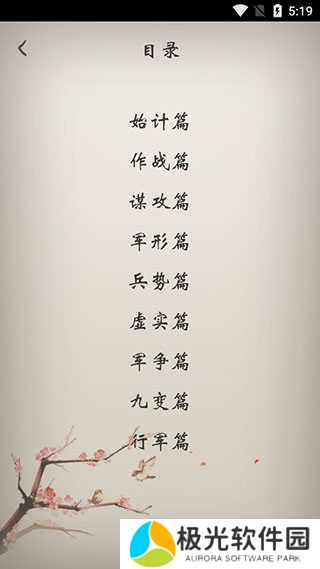 5:19
目录
始计篇
作战篇
谋攻篇
军形篇
兵势篇
虚实篇
军争篇
九变篇
行军篇
极光软件园
AURORA SOFTWARE PARK